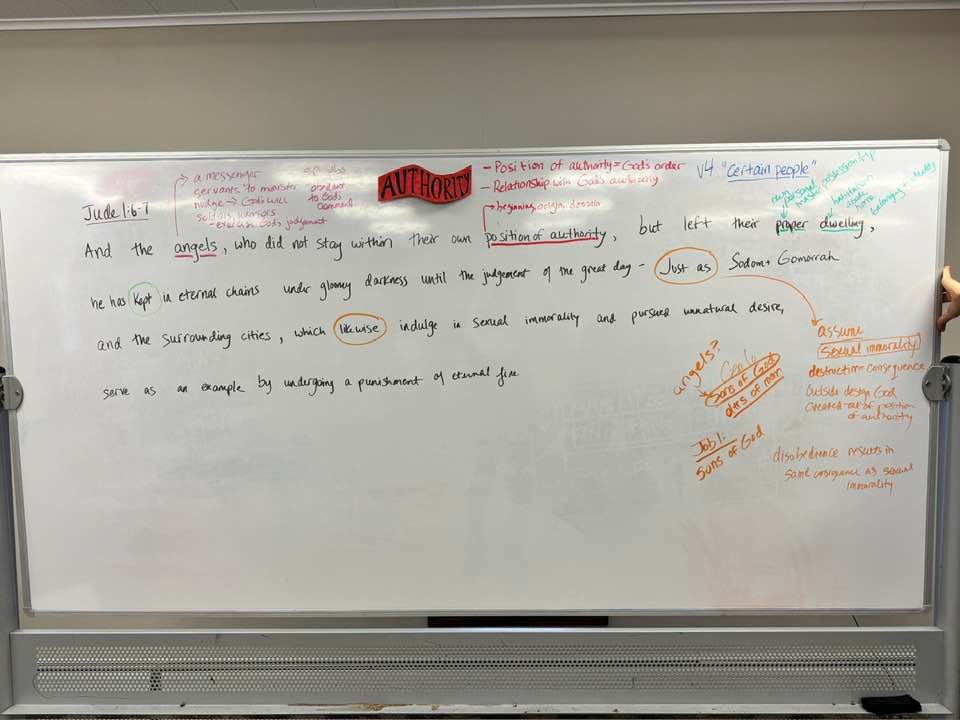 Jude 1:6-7
a messenger
servants to minister
nudge → God's will
soldiers, warriors
- exercise God's judgement
to God's
command
AUTHORITY
- Position of authority = God's order
- Relationship with God's authority
→ beginning, origin, domain
v4 "certain people"
habitation
home
And the angels, who did not stay within their own position of authority, but left their proper dwelling,
he has Kept in eternal chains under gloomy darkness until the judgement of the great day - Just as Sodom + Gomorrah
and the surrounding cities, which likewise indulge in sexual immorality and pursued unnatural desire,
serve as an example by undergoing a punishment of eternal fire.
angels?
Sons of God
dtrs of man
Job 1:
Sons of God
assume
sexual immorality
destruction = consequence
Outside design God
created - out of position
of authority
disobedience results in
same consequence as sexual
immorality